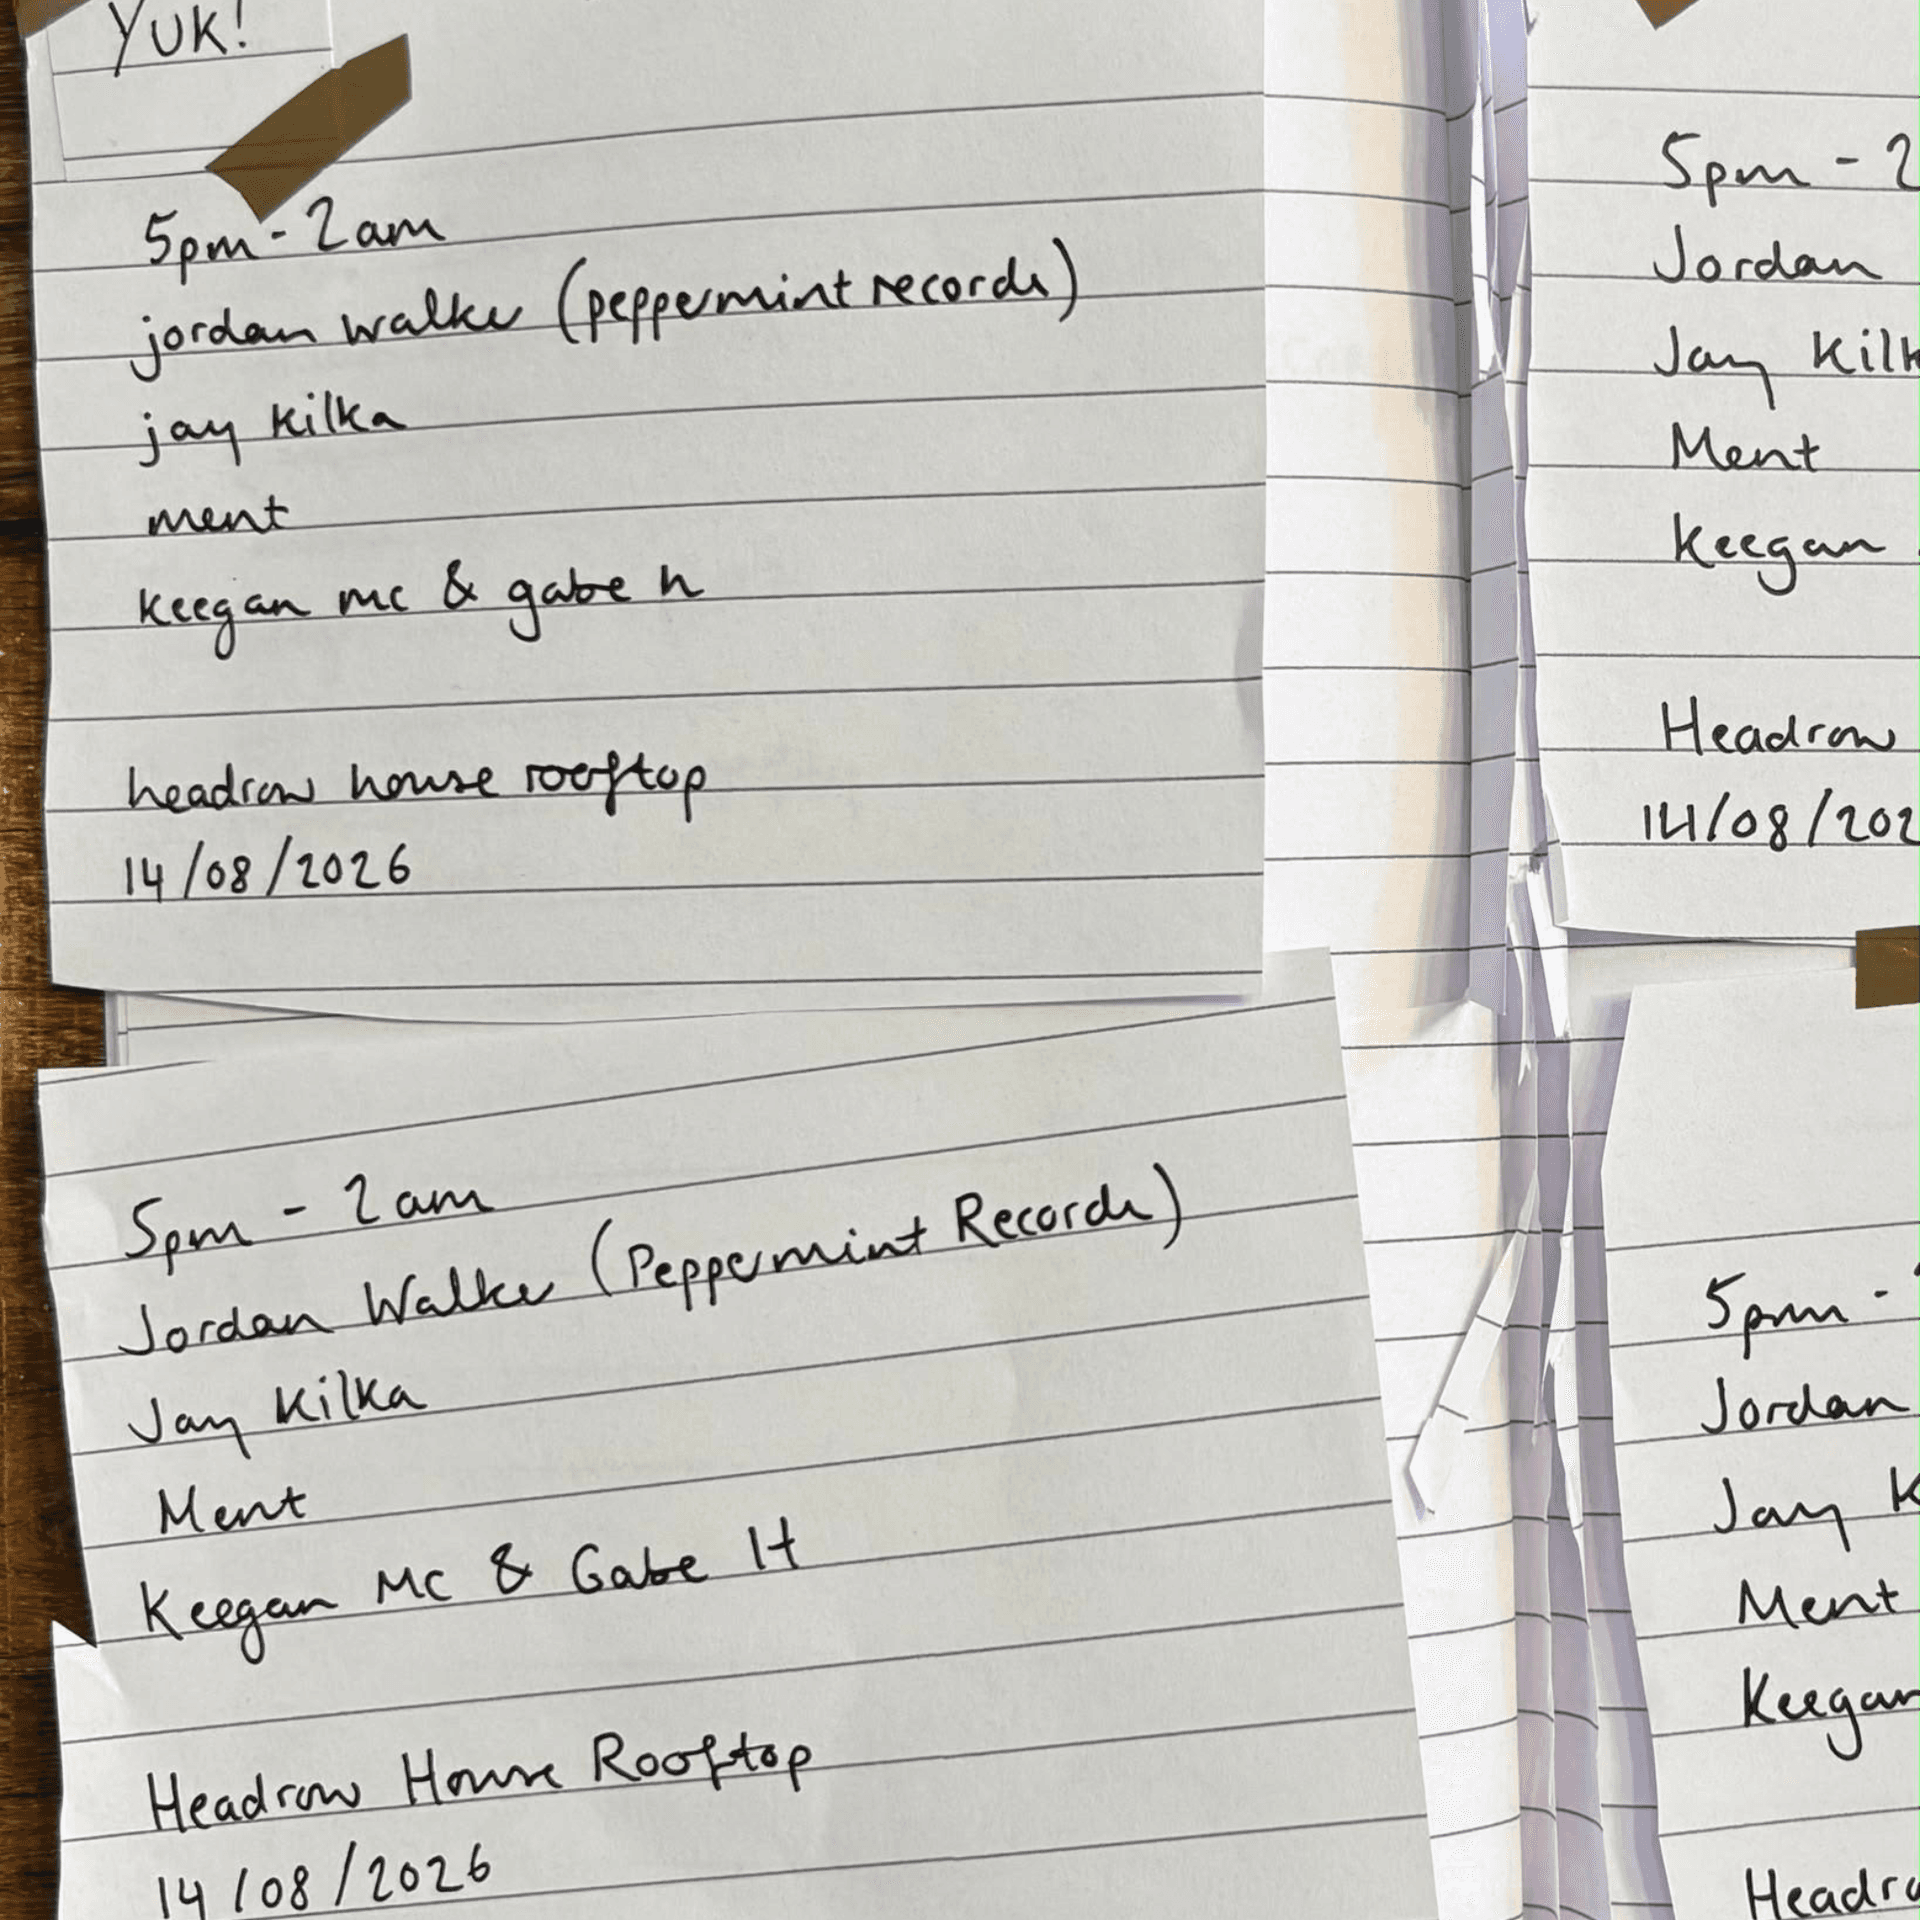 YUK!
5pm - 2am
jordan walker (peppermint records)
jay kilka
ment
keegan mc & gabe h
headrow house rooftop
14/08/2026
5pm - 2
Jordan
Jay Kilk
Ment
Keegan
Headrow
14/08/202
5pm - 2am
Jordan Walker (Peppermint Records)
Jay Kilka
Ment
Keegan Mc & Gabe H
Headrow House Rooftop
14/08/2026
5pm -
Jordan
Jay K
Ment
Keegan
Headro